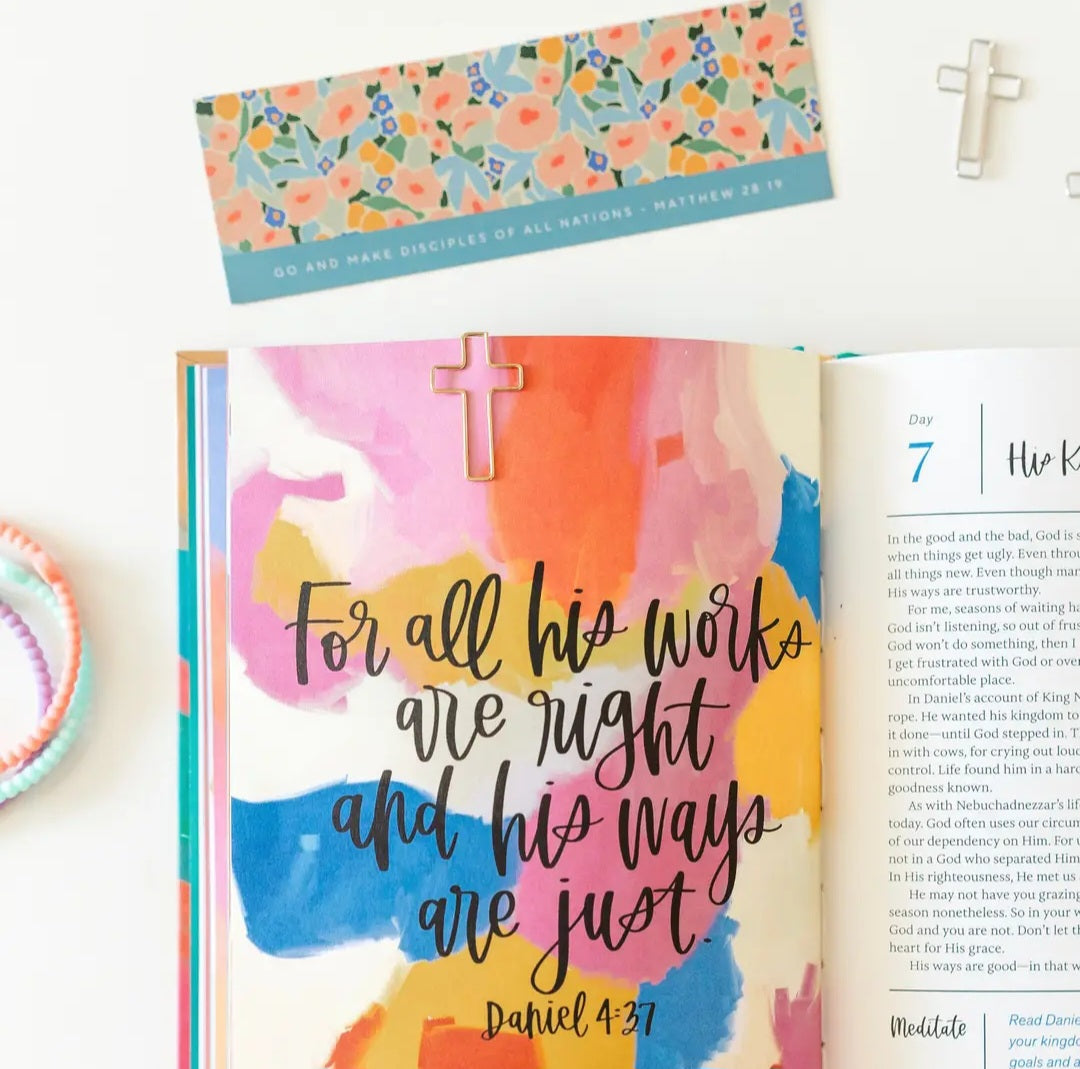 GO AND MAKE DISCIPLES OF ALL NATIONS - MATTHEW 28 19
For all his works
are right
and his ways
are just.
Daniel 4:37
Day
7
His
In the good and the bad, God is
when things get ugly. Even
all things new. Even though
His ways are trustworthy.
For me, seasons of waiting
God isn't listening, so out of
God won't do something, then I
I get frustrated with God or
uncomfortable place.
In Daniel's account of King
rope. He wanted his kingdom to
it done—until God stepped in.
in with cows, for crying out
control. Life found him in a
goodness known.
As with Nebuchadnezzar's
today. God often uses our
of our dependency on Him. For
not in a God who separated Him
In His righteousness, He met us
He may not have you grazing
season nonetheless. So in your
God and you are not. Don't let
heart for His grace.
His ways are good—in that
Meditate
Read
your
goals and